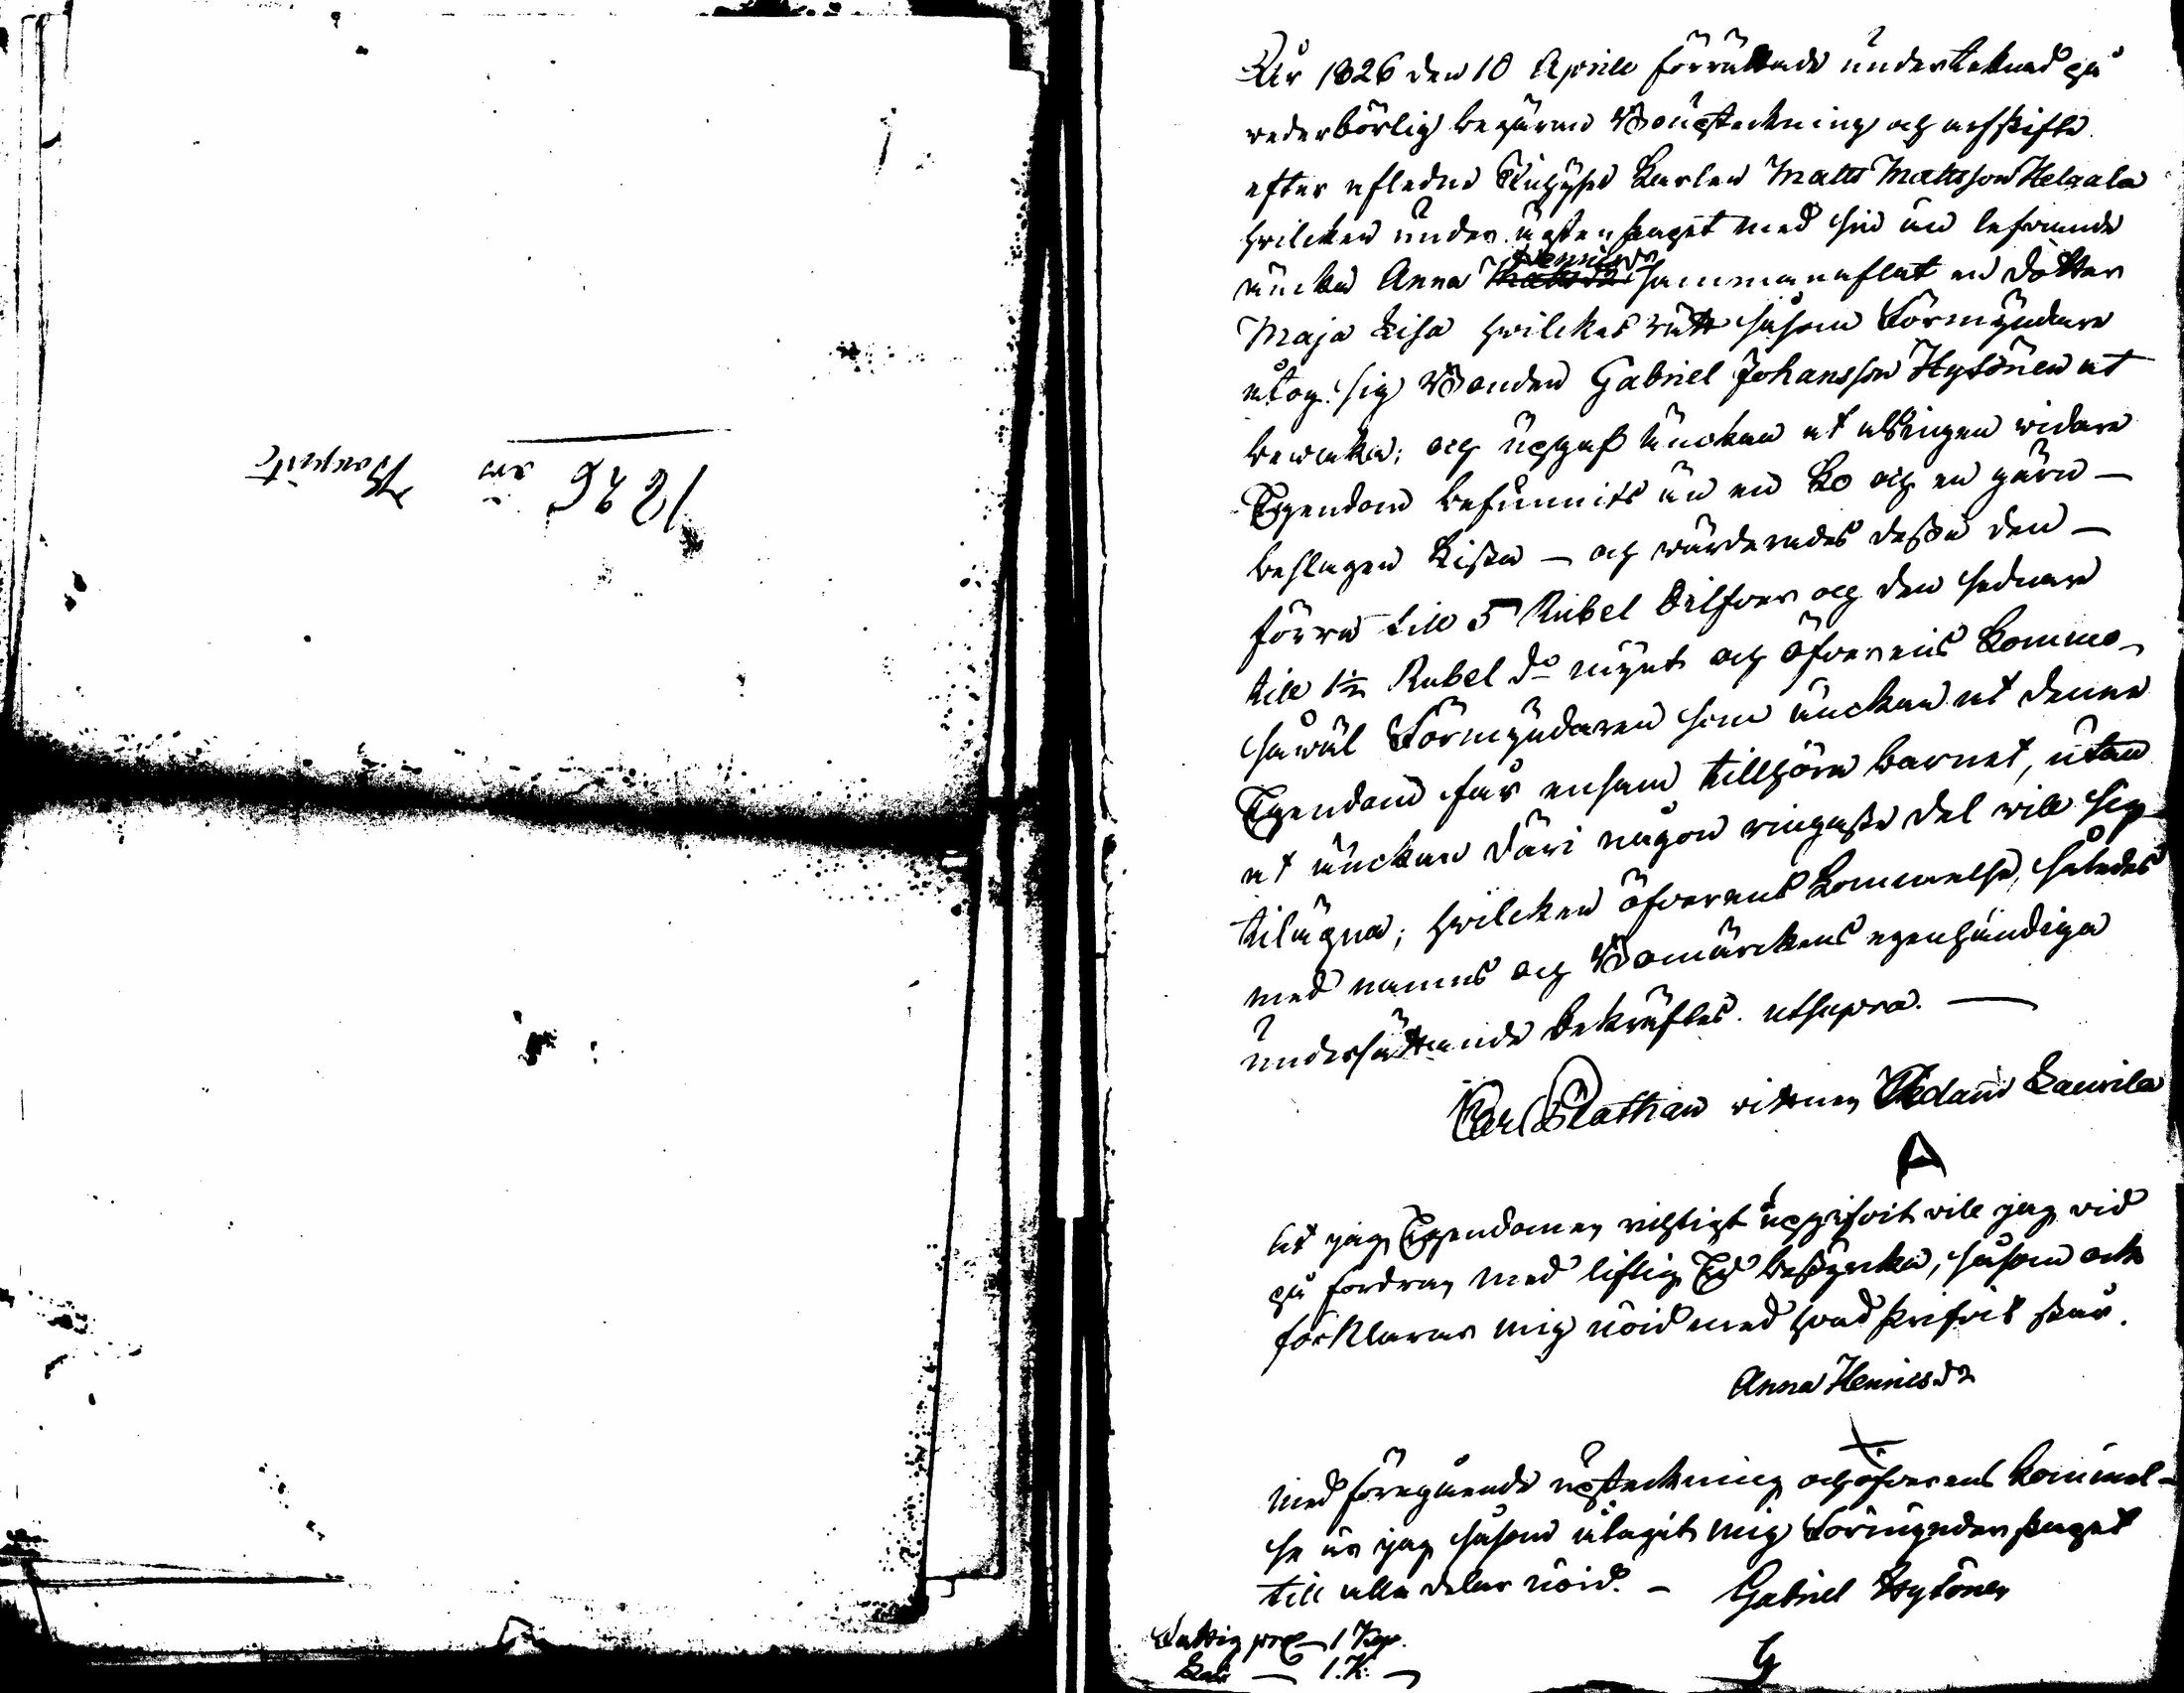 1826 års
År 1826 den 10 Aprill förrättade underteknad på
vederbörlig begäran Bouptekning och arfskifte
efter afledne Inhyses Karlen Matts Mattsson Helaala
hvilcken under ägtenskapet med sin än lefvande
äncka Anna Henricsdr sammanaflat en dotter
Maja Lisa hvilckas rätt såsom Förmyndare
åtog sig Bonden Gabriel Johansson Hytönen at
bevaka; och uppgaf änckan at alsingen vidare
Egendom befunnits än en Ko och en järn
beslagen Kista — och värderades desse den
förra till 5 Rubel Silfver och den sednare
till 1½ Rubel do mynt och öfverens kommo
såväl Förmyndaren som änckan at denna
Egendom får ensam tillhöra barnet, utan
at änckan däri någon ringaste del vill sig
tilägna; hvilcken öfverens kommelse, således
med namns och Bomärckens egenhändiga
undersättande bekräftes. utsupra. —
Carl Plathan vittnen Adam Laurila
A
At jag Egendomen rigtigt uppgifvit vill jag vid
på fordran med liflig Ed bestyrcka, såsom och
förklarar mig nöid med hvad skrifvit står.
Anna Henricsdr
Med föregående uptekning och öfverens kommel-
se är jag såsom åtagit mig Förmyndarskapet
till alla delar nöid. — Gabriel Hytönen
G
Fattig proc. 1 Kop.
1. K.